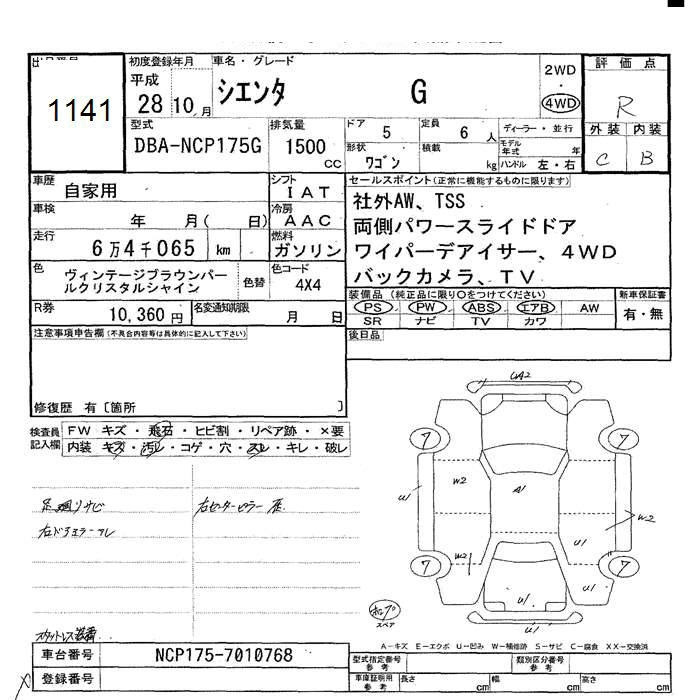 1141
初度登録年月
平成
28 10 月
車名・グレード
シエンタ G
2WD
・
4WD
評価点
R
外装 内装
C B
型式
DBA-NCP175G
排気量
1500
CC
ドア 5
定員 6 人
形状 ワゴン
積載 kg
ディーラー・並行
モデル年式 年
ハンドル 左・右
車歴 自家用
シフト IAT
車検 年 月( 日)
冷房 AAC
走行 6万4千065 km
燃料 ガソリン
色 ヴィンテージブラウンパールクリスタルシャイン
色替
色コード 4X4
R券 10,360 円
名変通知期限 月 日
セールスポイント(正常に機能するものに限ります)
社外AW、TSS
両側パワースライドドア
ワイパーデアイサー、4WD
バックカメラ、TV
装備品(純正品に限り○をつけてください)
新車保証書
PS PW ABS エアB AW
SR ナビ TV カワ
有・無
後日品
注意事項申告欄(不具合内容等は具体的に記入して下さい)
修復歴 有〔箇所 〕
検査員記入欄
FW キズ・飛石・ヒビ割・リペア跡・×要
内装 キズ・汚レ・コゲ・穴・スレ・キレ・破レ
足廻リサビ
右センターピラー
スタットレス装着
7 7
W2
A1
U1
W2
W2
U1
7 7
U1
U1
U1
スペア
A-キズ E-エクボ U-凹み W-補修跡 S-サビ C-腐食 XX-交換済
車台番号 NCP175-7010768
登録番号
型式指定番号 参考
類別区分番号 参考
車庫証明用 参考
長さ cm 幅 cm 高さ cm